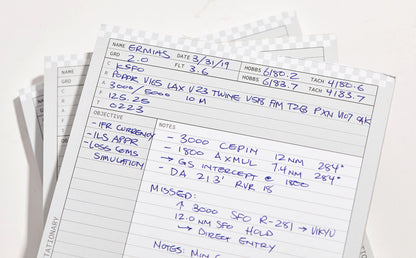 NAME ERMIAS DATE 3/31/19 HOBBS 6180.2 TACH 4180.6
GRO 2.0 FLT 3.6 HOBBS 6183.7 TACH 4183.7
C KSFO
R POPPR V165 LAX V23 TWINE V518 FIM PXN V107 OAK
A 3000/5000 10M
F 125.25
T 0223
OBJECTIVE
- IFR CURRENCY
- ILS APPR
- LOSS COMS
SIMULATION
NOTES
- 3000 CEPIN 12NM 284°
- 1800 AXMUL 7.4NM 284°
→ GS INTERCEPT @ 1800
- DA 213' RVR 18
MISSED:
↑ 3000 SFO R-281 → VIKYU
12.0NM SFO HOLD
→ DIRECT ENTRY
NOTES:
NAME
GRO
C
NAME